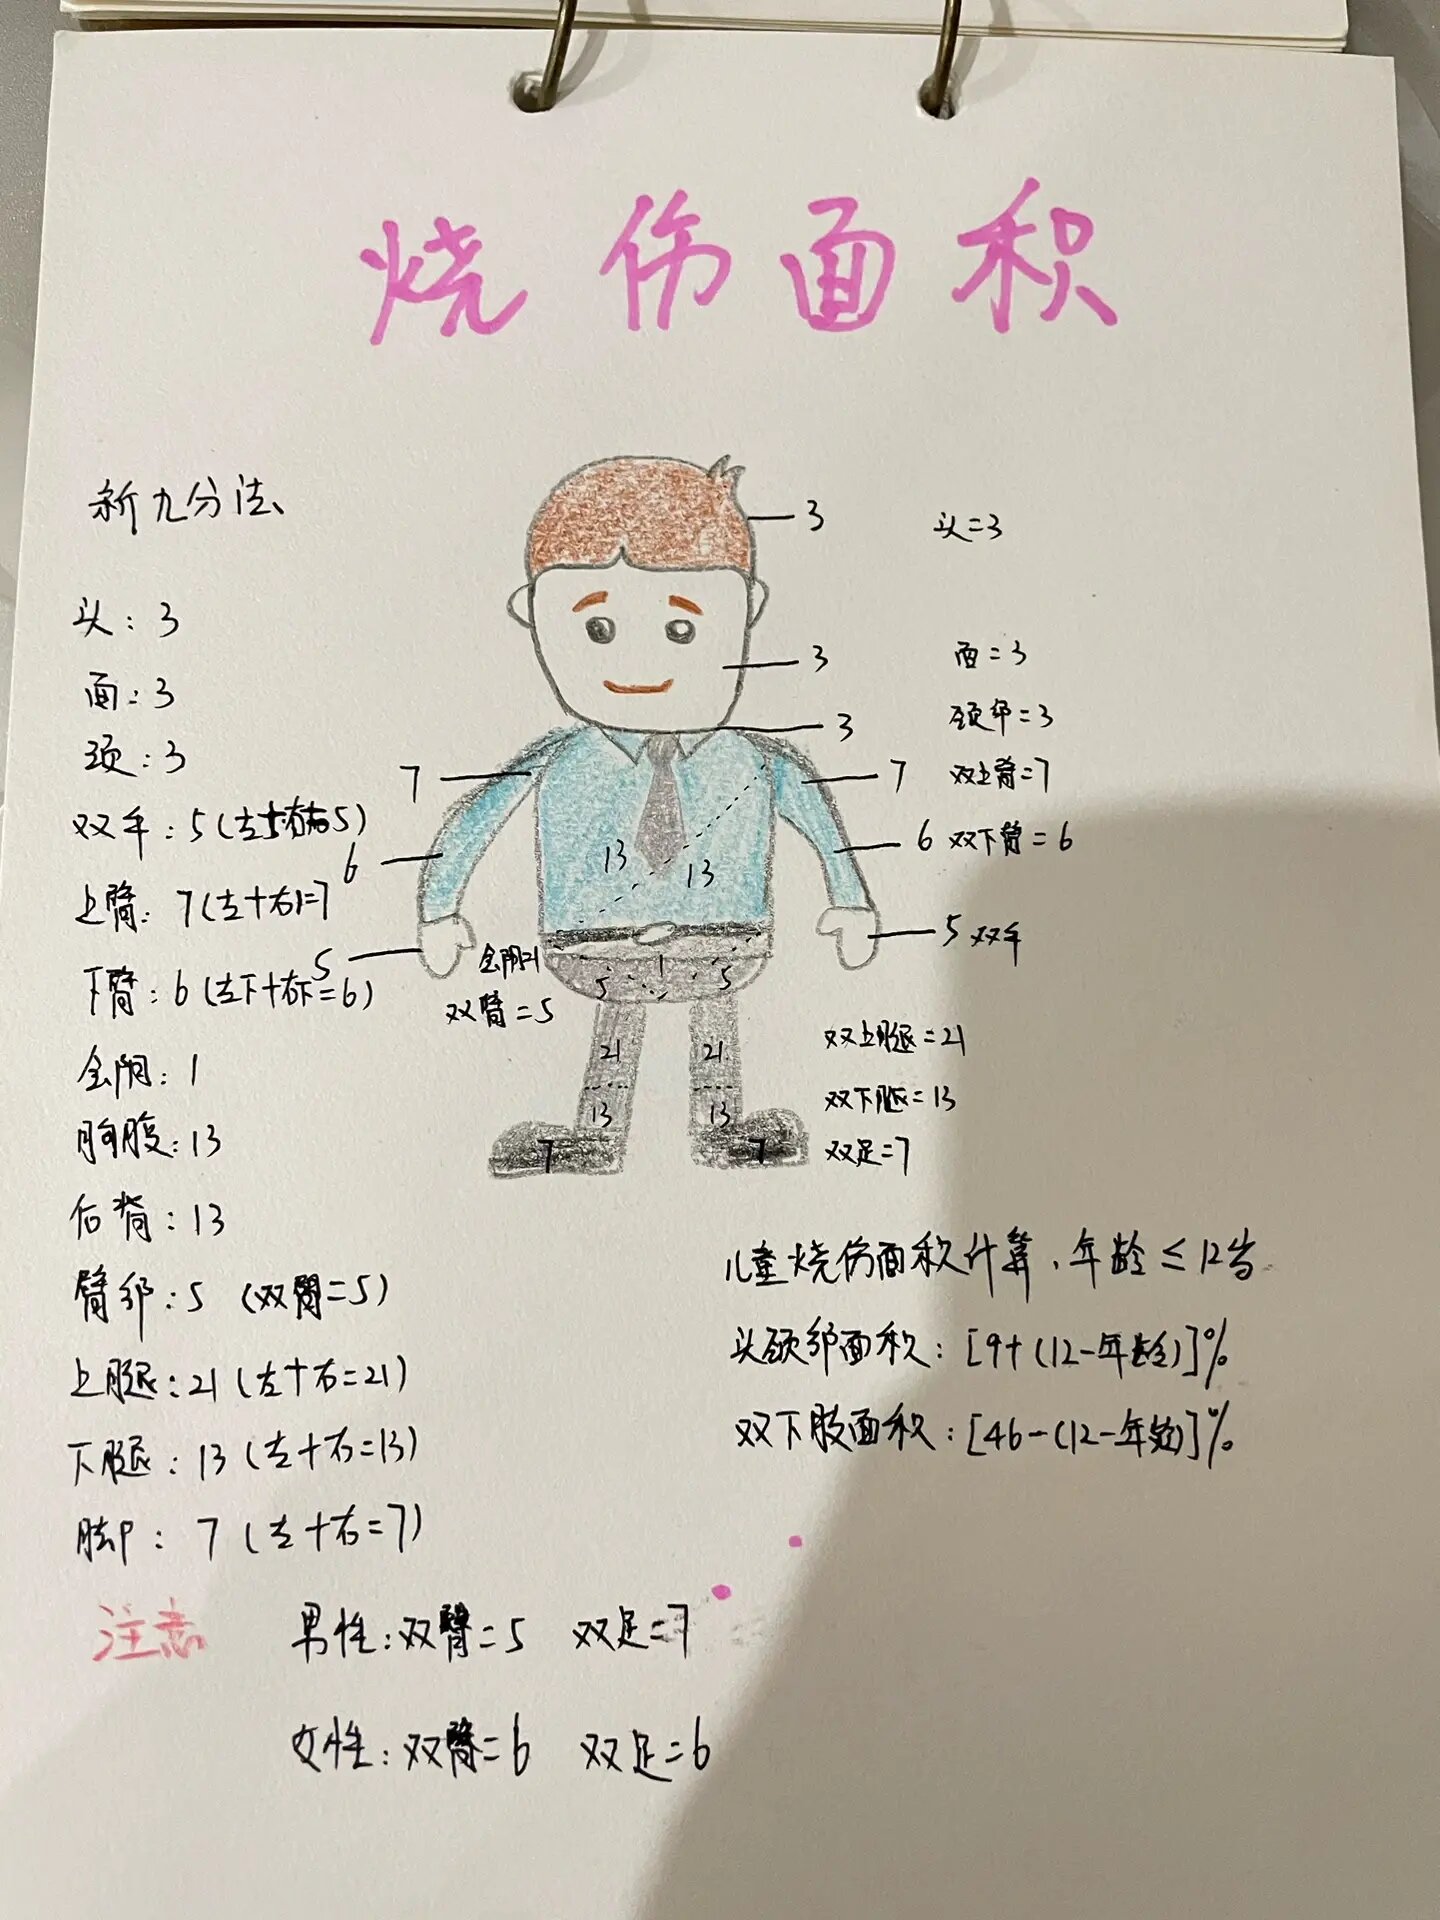 烧伤面积
新九分法
头：3
面：3
颈：3
双手：5(左+右=5)
上臂：7(左+右)=7
下臂：6(左下+右下=6)
会阴：1
胸腹：13
后背：13
臂部：5 (双臀=5)
上腿：21(左+右=21)
下腿：13(左+右=13)
脚：7(左+右=7)
3
3
3
7
7
6
6
5
5
13
13
会阴=1
双臂=5
5
1
5
21
21
13
13
7
7
头=3
面=3
颈部=3
双上臂=7
双下臂=6
双手
双上腿=21
双下腿=13
双足=7
儿童烧伤面积计算，年龄≤12岁
头颈部面积：[9+(12-年龄)]%
双下肢面积：[46-(12-年龄)]%
注意
男性：双臂=5 双足=7
女性：双臂=6 双足=6